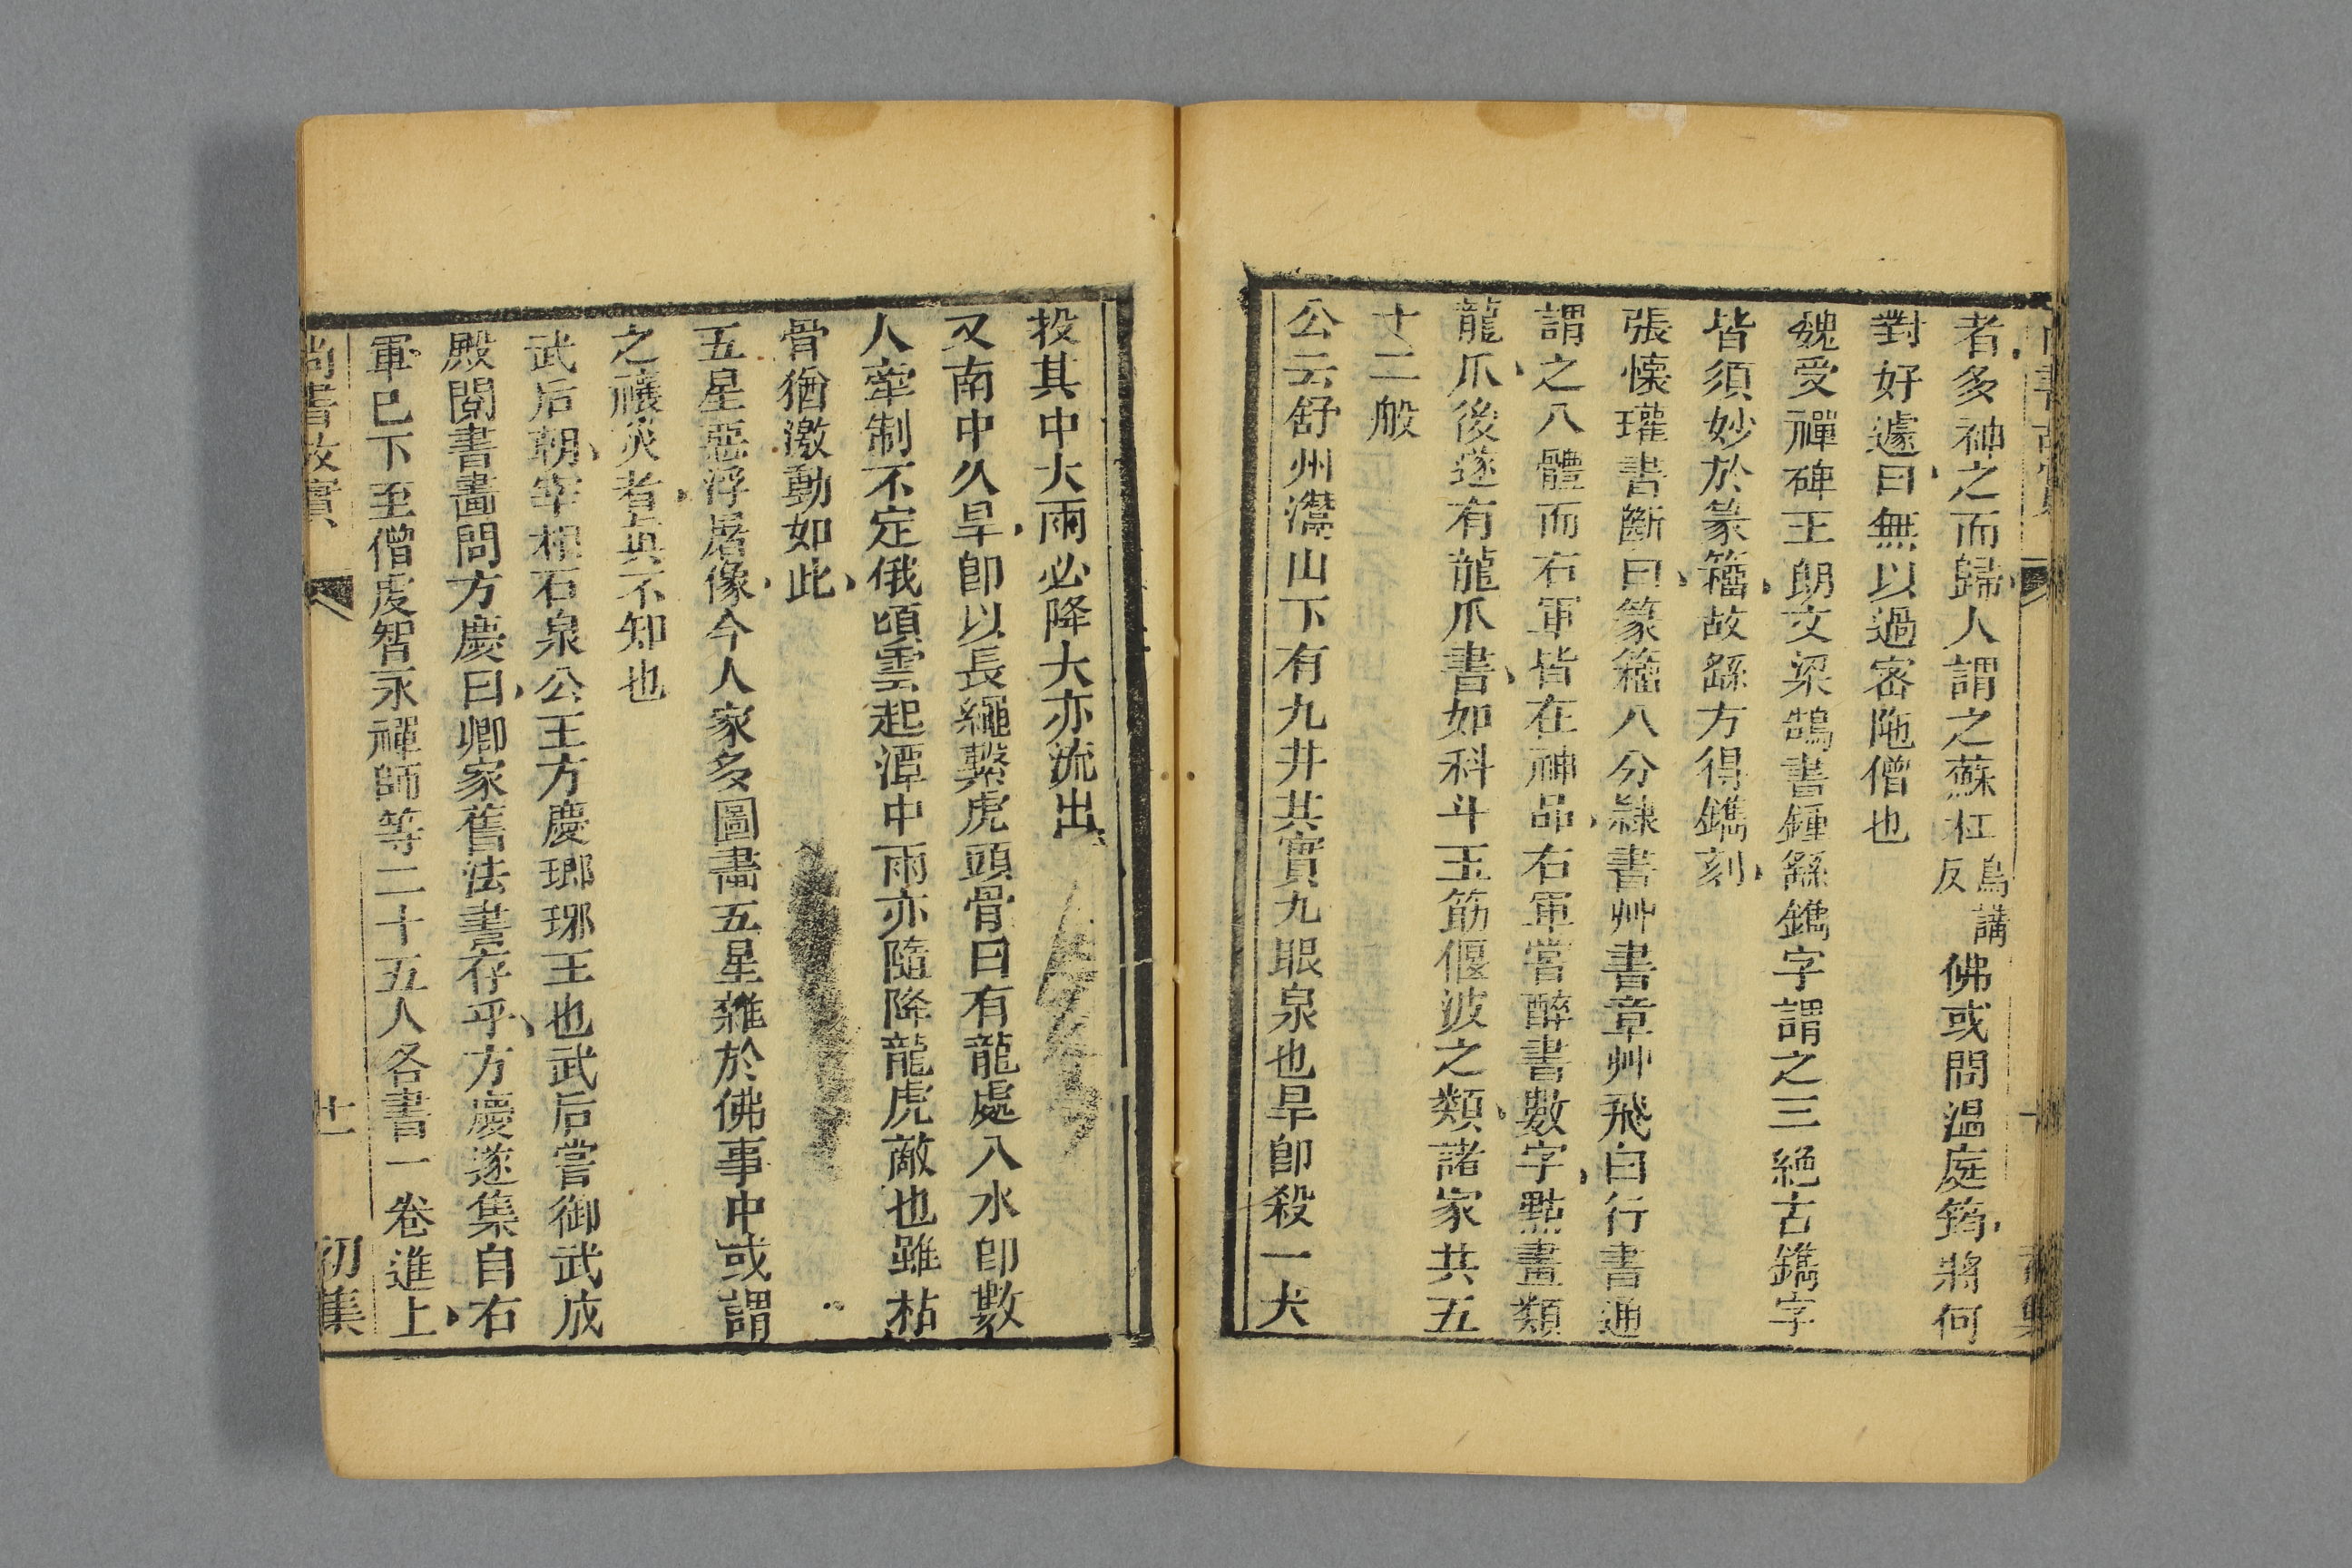 者多神之而歸人謂之蘇杠烏講反佛或問溫庭筠將何
對好遽曰無以過密陁僧也
魏受禪碑王朗文梁鵠書鍾繇鐫字謂之三絕古鐫字
皆須妙於篆籀故繇方得鐫刻
張懷瓘書斷曰篆籀八分隸書艸書章艸飛白行書通
謂之八體而右軍皆在神品右軍嘗醉書數字點畫類
龍爪後遂有龍爪書如科斗玉筯偃波之類諸家共五
十二般
公云舒州灊山下有九井其實九眼泉也旱卽殺一犬
投其中大雨必降犬亦流出
又南中久旱卽以長繩繫虎頭骨曰有龍處入水卽數
人牽制不定俄頃雲起潭中雨亦隨降龍虎敵也雖枯
骨猶激動如此
五星惡浮屠像今人家多圖畵五星雜於佛事中或謂
之禳災者真不知也
武后朝宰相石泉公王方慶瑯琊王也武后嘗御武成
殿閱書畵問方慶曰卿家舊法書存乎方慶遂集自右
軍已下至僧虔智永禪師等二十五人各書一卷進上
尚書故實
十一
初集